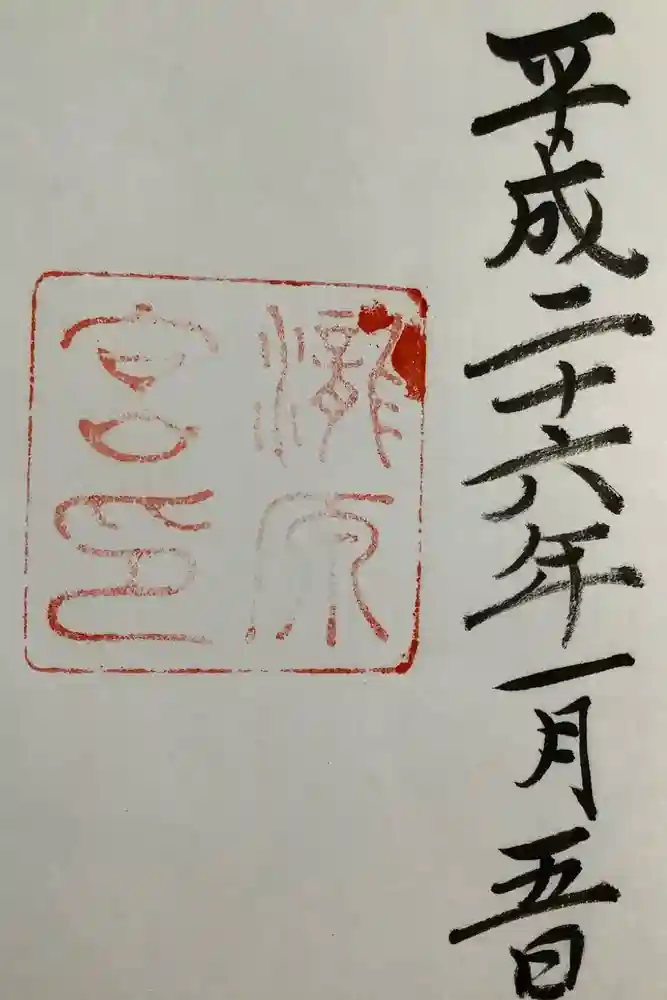 平成二十六年一月五日
瀧原
宮印